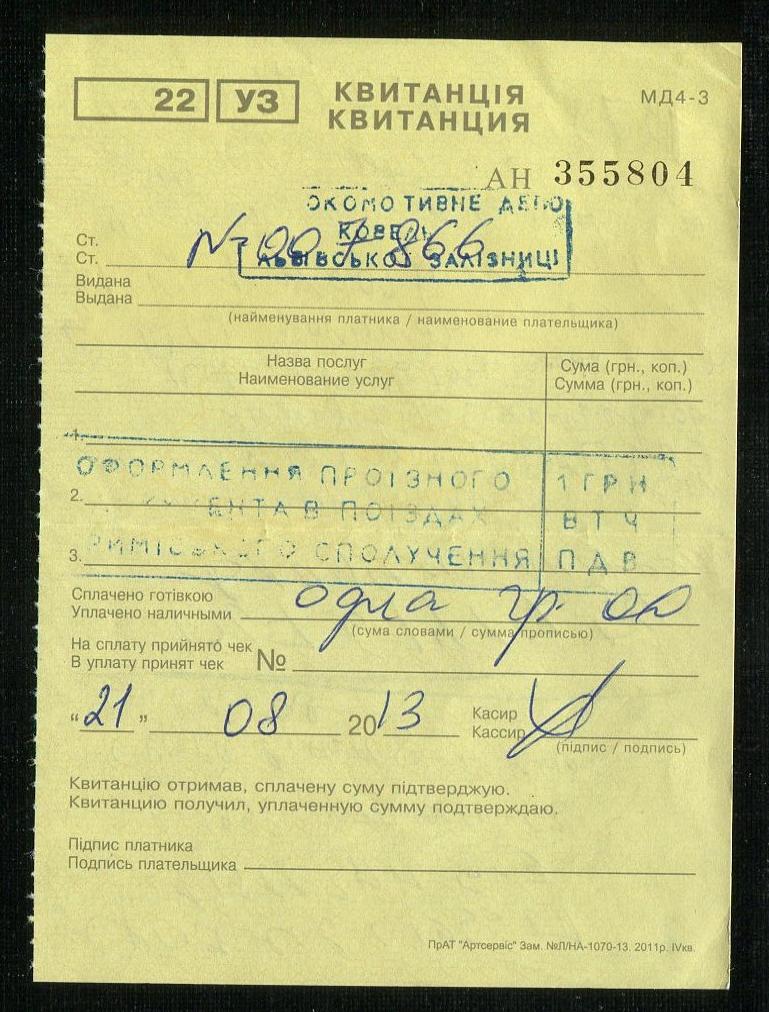 22 УЗ КВИТАНЦІЯ МД4-3
КВИТАНЦИЯ
АН 355804
ЛОКОМОТИВНЕ ДЕПО
КОВЕЛЬ
ЛЬВІВСЬКОЇ ЗАЛІЗНИЦІ
Ст.
Ст. № 007866
Видана
Выдана
(найменування платника / наименование плательщика)
Назва послуг Сума (грн., коп.)
Наименование услуг Сумма (грн., коп.)
1.
ОФОРМЛЕННЯ ПРОЇЗНОГО 1 ГРН
2.
ЕНТА В ПОЇЗДАХ В Т Ч
3. РИМІСЬКОГО СПОЛУЧЕННЯ П Д В
Сплачено готівкою
Уплачено наличными одна гр. 00
(сума словами / сумма прописью)
На сплату прийнято чек
В уплату принят чек №
"21" 08 2013 Касир
Кассир
(підпис / подпись)
Квитанцію отримав, сплачену суму підтверджую.
Квитанцию получил, уплаченную сумму подтверждаю.
Підпис платника
Подпись плательщика
ПрАТ "Артсервіс" Зам. №Л/НА-1070-13. 2011р. IVкв.